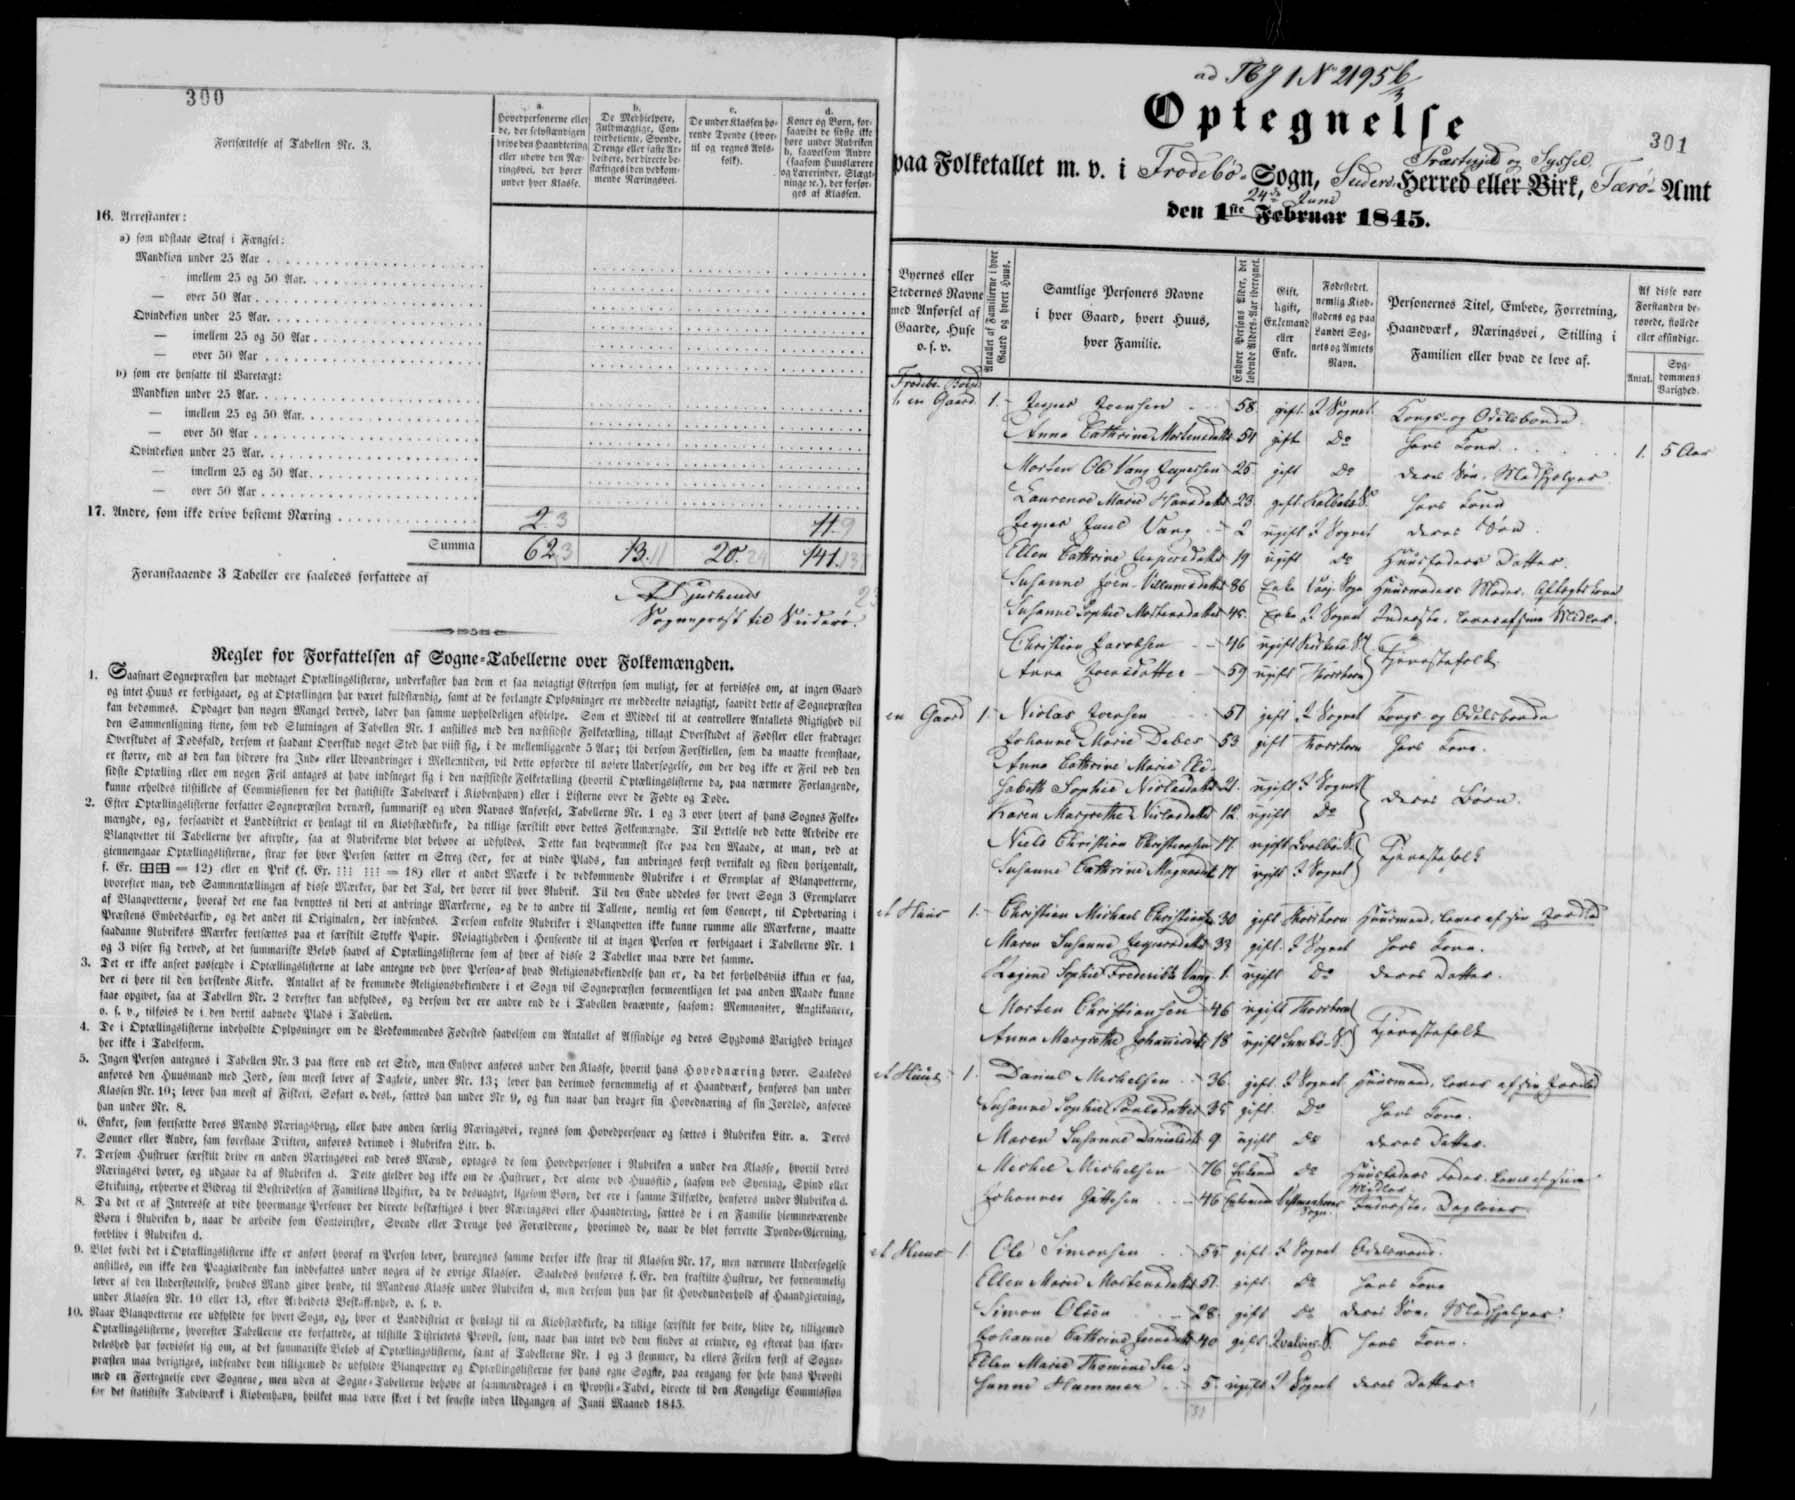 300
Fortsættelse af Tabellen Nr. 3.
a.
Hovedpersonerne eller
de, der selvstændigen
drive den Haandtering
eller udøve den Næ-
ringsvei, der hører
under hver Klasse.
b.
De Medhielpere,
Fuldmægtige, Con-
toirbetiente, Svende,
Drenge eller faste Ar-
beidere, der directe be-
skæftiges i den vedkom-
mende Næringsvei.
c.
De under Klassen hø-
rende Tyende (hvor-
til og regnes Avls-
folk).
d.
Koner og Børn, for-
saavidt de sidste ikke
høre under Rubriken
b, saavelsom Andre
(saasom Huuslærere
og Lærerinder, Slægt-
ninge ic.), der forsør-
ges af Klassen.
16. Arrestanter:
a) som udstaae Straf i Fængsel:
Mandkiøn under 25 Aar
— imellem 25 og 50 Aar.
— over 50 Aar
Qvindekiøn under 25 Aar.
— imellem 25 og 50 Aar
— over 50 Aar
b) som ere hensatte til Varetægt:
Mandkiøn under 25 Aar.
— imellem 25 og 50 Aar.
— over 50 Aar
Qvindekiøn under 25 Aar.
— imellem 25 og 50 Aar.
— over 50 Aar
17. Andre, som ikke drive bestemt Næring 2 3 11. 9
Summa 62 3 13. 11 20. 24 141.
Foranstaaende 3 Tabeller ere saaledes forfattede af
Sognepræst til Suderø.
Regler for Forfattelsen af Sogne-Tabellerne over Folkemængden.
1. Saasnart Sognepræsten har modtaget Optællingslisterne, underkaster han dem et saa nøiagtigt Eftersyn som muligt, for at forvisses om, at ingen Gaard
og intet Huus er forbigaaet, og at Optællingen har været fuldstændig, samt at de forlangte Oplysninger ere meddeelte nøiagtigt, saavidt dette af Sognepræsten
kan bedømmes. Opdager han nogen Mangel derved, lader han samme uopholdeligen afhielpe. Som et Middel til at controllere Antallets Rigtighed vil
den Sammenligning tiene, som ved Slutningen af Tabellen Nr. 1 anstilles med den næstsidste Folketælling, tillagt Overskudet af Fødsler eller fradraget
Overskudet af Dødsfald, dersom et saadant Overskud noget Sted har viist sig, i de mellemliggende 5 Aar; thi dersom Forskiellen, som da maatte fremstaae,
er større, end at den kan hidrøre fra Ind- eller Udvandringer i Mellemtiden, vil dette opfordre til nøiere Undersøgelse, om der dog ikke er Feil ved den
sidste Optælling eller om nogen Feil antages at have indsneget sig i den næstsidste Folketælling (hvortil Optællingslisterne da, paa nærmere Forlangende,
kunne erholdes tilstillede af Commissionen for det statistiske Tabelværk i Kiøbenhavn) eller i Listerne over de Fødte og Døde.
2. Efter Optællingslisterne forfatter Sognepræsten dernæst, summarisk og uden Navnes Anførsel, Tabellerne Nr. 1 og 3 over hvert af hans Sognes Folke-
mængde, og, forsaavidt et Landdistrict er henlagt til en Kiøbstadkirke, da tillige særskilt over dettes Folkemængde. Til Lettelse ved dette Arbeide ere
Blanqvetter til Tabellerne her aftrykte, saa at Rubrikerne blot behøve at udfyldes. Dette kan beqvemmest skee paa den Maade, at man, ved at
giennemgaae Optællingslisterne, strax for hver Person sætter en Streg (der, for at vinde Plads, kan anbringes først vertikalt og siden horizontalt,
f. Ex. ⊞⊞ = 12) eller en Prik (f. Ex. ⁝⁝⁝ ⁝⁝⁝ = 18) eller et andet Mærke i de vedkommende Rubriker i et Exemplar af Blanqvetterne,
hvorefter man, ved Sammentællingen af disse Mærker, har det Tal, der hører til hver Rubrik. Til den Ende uddeles for hvert Sogn 3 Exemplarer
af Blanqvetterne, hvoraf det ene kan benyttes til deri at anbringe Mærkerne, og de to andre til Tallene, nemlig eet som Concept, til Opbevaring i
Præstens Embedsarkiv, og det andet til Originalen, der indsendes. Dersom enkelte Rubriker i Blanqvetten ikke kunne rumme alle Mærkerne, maatte
saadanne Rubrikers Mærker fortsættes paa et særskilt Stykke Papir. Nøiagtigheden i Henseende til at ingen Person er forbigaaet i Tabellerne Nr. 1
og 3 viser sig derved, at det summariske Beløb saavel af Optællingslisterne som af hver af disse 2 Tabeller maa være det samme.
3. Det er ikke anseet passende i Optællingslisterne at lade antegne ved hver Person af hvad Religionsbekiendelse han er, da det forholdsviis ikkun er faa,
der ei høre til den herskende Kirke. Antallet af de fremmede Religionsbekiendere i et Sogn vil Sognepræsten formeentligen let paa anden Maade kunne
faae opgivet, saa at Tabellen Nr. 2 derefter kan udfyldes, og dersom der ere andre end de i Tabellen benævnte, saasom: Mennoniter, Anglikanere,
o. s. v., tilføies de i den dertil aabnede Plads i Tabellen.
4. De i Optællingslisterne indeholdte Oplysninger om de Vedkommendes Fødested saavelsom om Antallet af Afsindige og deres Sygdoms Varighed bringes
her ikke i Tabelform.
5. Ingen Person antegnes i Tabellen Nr. 3 paa flere end eet Sted, men Enhver anføres under den Klasse, hvortil hans Hovednæring hører. Saaledes
anføres den Huusmand med Jord, som meest lever af Dagleie, under Nr. 13; lever han derimod fornemmelig af et Haandværk, henføres han under
Klassen Nr. 10; lever han meest af Fiskeri, Søfart o. desl., sættes han under Nr. 9, og kun naar han drager sin Hovednæring af sin Jordlod, anføres
han under Nr. 8.
6. Enker, som fortsætte deres Mænds Næringsbrug, eller have anden særlig Næringsvei, regnes som Hovedpersoner og sættes i Rubriken Litr. a. Deres
Sønner eller Andre, som forestaae Driften, anføres derimod i Rubriken Litr. b.
7. Dersom Hustruer særskilt drive en anden Næringsvei end deres Mænd, optages de som Hovedpersoner i Rubriken a under den Klasse, hvortil deres
Næringsvei hører, og udgaae da af Rubriken d. Dette gielder dog ikke om de Hustruer, der alene ved Huusflid, saasom ved Syening, Spind eller
Strikning, erhverve et Bidrag til Bestridelsen af Familiens Udgifter, da de desuagtet, ligesom Børn, der ere i samme Tilfælde, henføres under Rubriken d.
8. Da det er af Interesse at vide hvormange Personer der directe beskæftiges i hver Næringsvei eller Haandtering, sættes de i en Familie hiemmeværende
Børn i Rubriken b, naar de arbeide som Contoirister, Svende eller Drenge hos Forældrene, hvorimod de, naar de blot forrette Tyende-Gierning,
forblive i Rubriken d.
9. Blot fordi det i Optællingslisterne ikke er anført hvoraf en Person lever, henregnes samme derfor ikke strax til Klassen Nr. 17, men nærmere Undersøgelse
anstilles, om ikke den Paagiældende kan indbefattes under nogen af de øvrige Klasser. Saaledes henføres f. Ex. den fraskilte Hustrue, der fornemmelig
lever af den Understøttelse, hendes Mand giver hende, til Mandens Klasse under Rubriken d, men dersom hun har sit Hovedunderhold af Haandgierning,
under Klassen Nr. 10 eller 13, efter Arbeidets Beskaffenhed, o. s. v.
10. Naar Blanqvetterne ere udfyldte for hvert Sogn, og, hvor et Landdistrict er henlagt til en Kiøbstadkirke, da tillige særskilt for dette, blive de, tilligemed
Optællingslisterne, hvorefter Tabellerne ere forfattede, at tilstille Districtets Provst, som, naar han intet ved dem finder at erindre, og efterat han især-
deleshed har forvisset sig om, at det summariske Beløb af Optællingslisterne, samt af Tabellerne Nr. 1 og 3 stemmer, da ellers Feilen først af Sogne-
præsten maa berigtiges, indsender dem tilligemed de udfyldte Blanqvetter og Optællingslisterne for hans egne Sogne, paa eengang for hele hans Provsti
med en Fortegnelse over Sognene, men uden at Sogne-Tabellerne behøve at sammendrages i en Provsti-Tabel, directe til den Kongelige Commission
for det statistiske Tabelværk i Kiøbenhavn, hvilket maa være skeet i det seneste inden Udgangen af Junii Maaned 1845.
ad 1 No 2195
Optegnelse
301
Præstegjeld og Syssel
paa Folketallet m. v. i Frodebø- Sogn, Suderø Herred eller Birk, Færø- Amt
24de Juni
den 1ste Februar 1845.
Byernes eller
Stedernes Navne
med Anførsel af
Gaarde, Huse
o. s. v.
Antallet af Familierne i hver
Gaard og hvert Huus.
Samtlige Personers Navne
i hver Gaard, hvert Huus,
hver Familie.
Enhver Persons Alder, det
løbende Alders-Aar iberegnet.
Gift,
ugift,
Enkemand
eller
Enke.
Fødestedet,
nemlig Kiøb-
stadens og paa
Landet Sog-
nets og Amtets
Navn.
Personernes Titel, Embede, Forretning,
Haandværk, Næringsvei, Stilling i
Familien eller hvad de leve af.
Af disse vare
Forstanden be-
røvede, fiollede
eller afsindige.
Antal.
Syg-
dommens
Varighed.
Frodebø Bøigd
en Gaard 1. Jesper Joensen 58 gift I Sognet Kongs- og Odelsbonde
Anna Cathrine Mortensdatter 54 gift Do hans Kone 1. 5 Aar
Morten Ole Vang Jespersen 25 gift Do deres Søn, Medhjelper
Laurence Marie Hansdatter 23 gift hans Kone
Jesper Juul Vang 2 ugift I Sognet deres Søn
Ellen Cathrine Jespersdatter 19 ugift Do Huusfaders Datter
Susanne Joen Villumsdatter 86 Enke Huusfaders Moder, Aftægtskone
Susanne Sophie Mortensdatter 45 Enke I Sognet Inderste, lever af sine Midler.
Christian Jacobsen 46 ugift } Tjenestefolk
Anna Joensdatter 59 ugift Thorshavn
en Gaard 1 Niclas Joensen 51 gift I Sognet Kongs- og Odelsbonde
Johanne Marie Debes 53 gift Thorshavn hans Kone
Anna Cathrine Marie Eli-
sabeth Sophie Niclasdatter 21. ugift I Sognet } deres Børn.
Karen Margrethe Niclasdatter 12. ugift Do
Niels Christian Christiansen 17. ugift Qvalbø S. } Tjenestefolk
Susanne Cathrine Magnusdatter 17 ugift I Sognet
et Huus 1. Christian Michael Christiansen 30 gift Thorshavn Huusmand, lever af sin Jordlod
Maren Susanne Jespersdatter 33 gift I Sognet hans Kone.
Regine Sophie Frederikke Vang 1. ugift Do deres Datter.
Morten Christiansen 46 ugift Thorshavn } Tjenestefolk
Anna Margrethe Johannesdatter 18 ugift Sumbø S.
et Huus 1. Daniel Michelsen 36. gift I Sognet Huusmand, lever af sin Jordlod
Susanne Sophie Poulsdatter 35 gift. Do hans Kone.
Maren Susanne Danielsdatter 9 ugift Do deres Datter.
Michel Michelsen 76 Enkemand Do Huusfaders Fader, lever af sine Midler
Johannes Guttesen 46 Enkemand Vestmanhavns Sogn Inderste, Dagleier
et Huus 1. Ole Simonsen 55 gift I Sognet Odelsmand.
Ellen Marie Mortensdatter 51. gift Do hans Kone
Simon Olsen 28. gift Do deres Søn, Medhjelper.
Johanne Cathrine Joensdatter 40 gift Qvalvig S. hans Kone.
Ellen Marie Thomine Su-
sanne Hammer 5. ugift I Sognet deres Datter